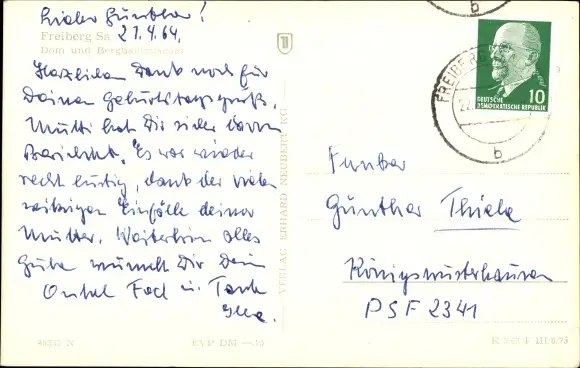 Lieber Günther!
Freiberg Sa 21.4.64.
Dom und Bergbaumuseum
Herzlichen Dank noch für
Deinen Geburtstagsgruß.
Mutti hat Dir sicher davon
Berichtet. Es war wieder
recht lustig, dank der vielen
witzigen Einfälle deiner
Mutter. Weiterhin alles
Gute wünscht Dir Dein
Onkel Fred u. Tante
Ilse.
VERLAG ERHARD NEUBERT KG
FREIBERG
b
b
10
DEUTSCHE
DEMOKRATISCHE REPUBLIK
Funker
Günther Thiele
Königswusterhausen
PSF 2341
EVP DM